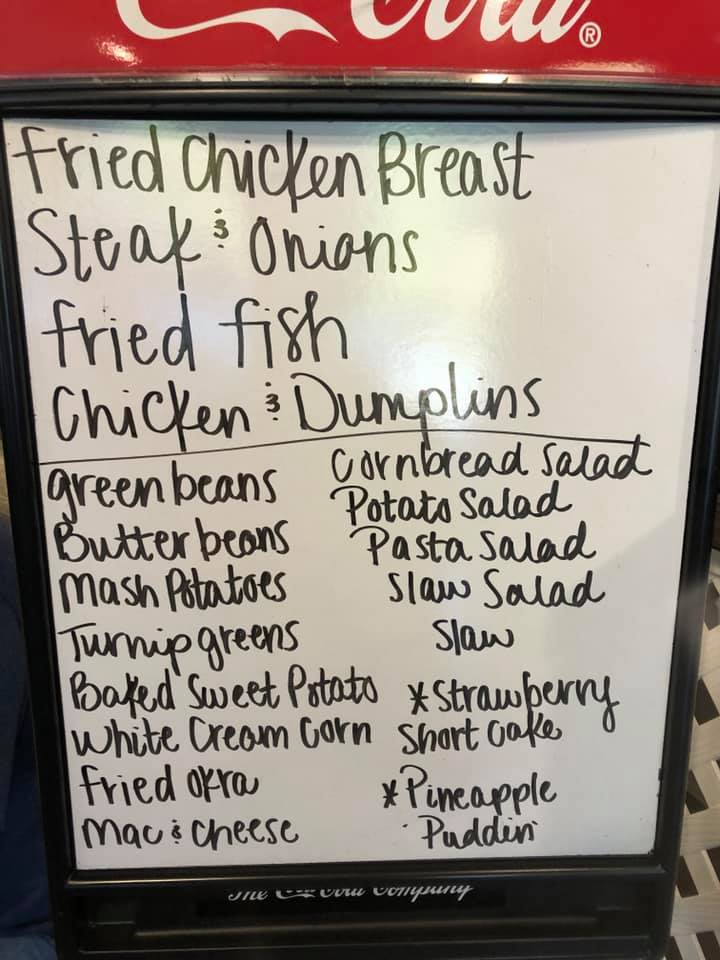 Coca-Cola®
Fried Chicken Breast
Steak & Onions
fried fish
Chicken & Dumplins
green beans
Butter beans
Mash Potatoes
Turnip greens
Baked Sweet Potato
White Cream Corn
fried okra
Mac & cheese
Cornbread Salad
Potato Salad
Pasta Salad
Slaw Salad
Slaw
*Strawberry
Short cake
*Pineapple
Puddin'
The Coca-Cola Company